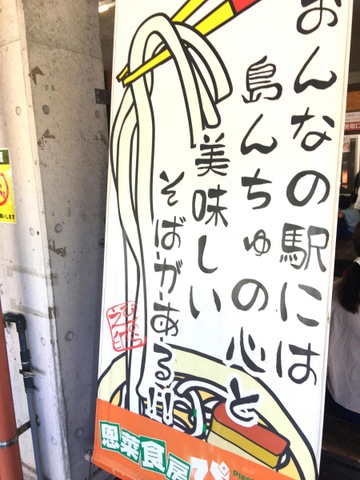 おんなの駅には
島んちゅの心と
美味しい
そばがある!!
恩菜食房